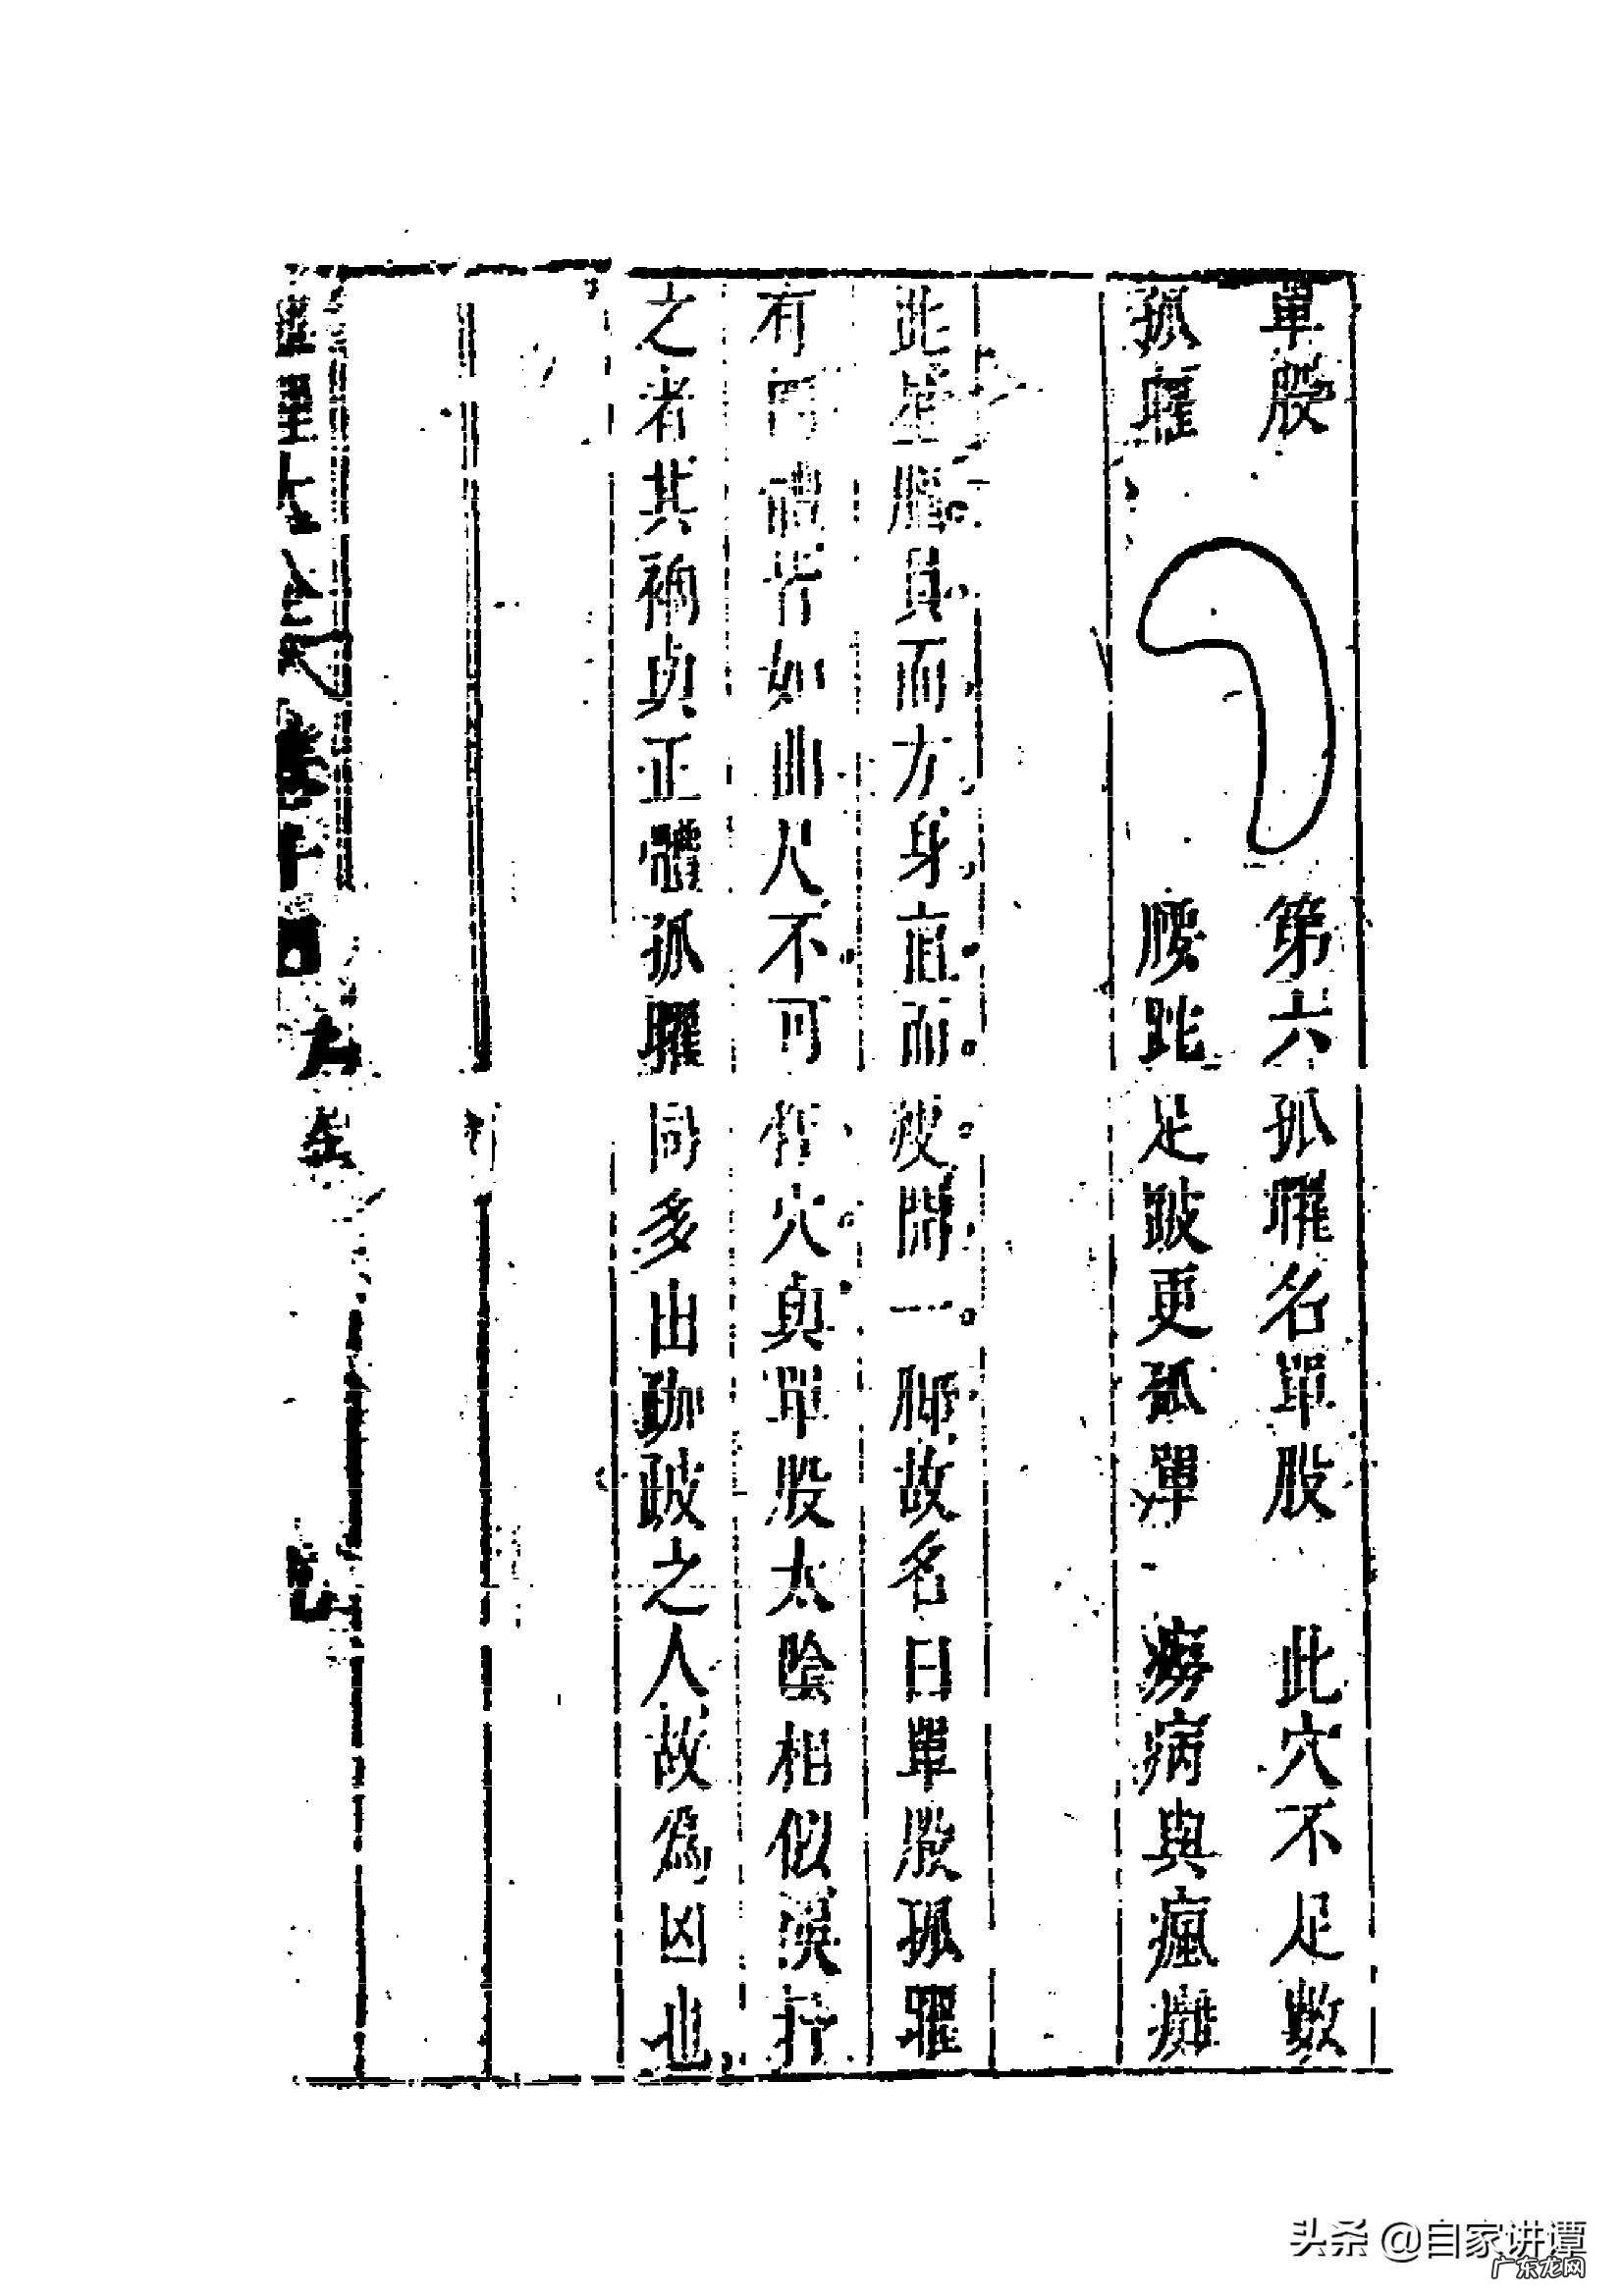 單股 第六孤曜名單股 此穴不足數
孤曜 腰跎足跛更孤單 癆病與瘋癱
此星腦員而方身直而瘦開一脚故名曰單股孤曜
有同而皆如曲尺不可作穴與單股太陰相似誤扦
之者其禍與正體孤曜同多出跏跛之人故為凶也
地理大全 卷十四
头条 @自家讲谭
广东龙网